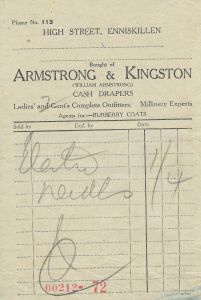 Phone No. 113
HIGH STREET, ENNISKILLEN
Bought of
ARMSTRONG & KINGSTON
(WILLIAM ARMSTRONG)
CASH DRAPERS
Ladies' and Gent's Complete Outfitters. Millinery Experts
Agents for:—BURBERRY COATS
Sold by Exd. by Date
needles 1/4
00212- 72